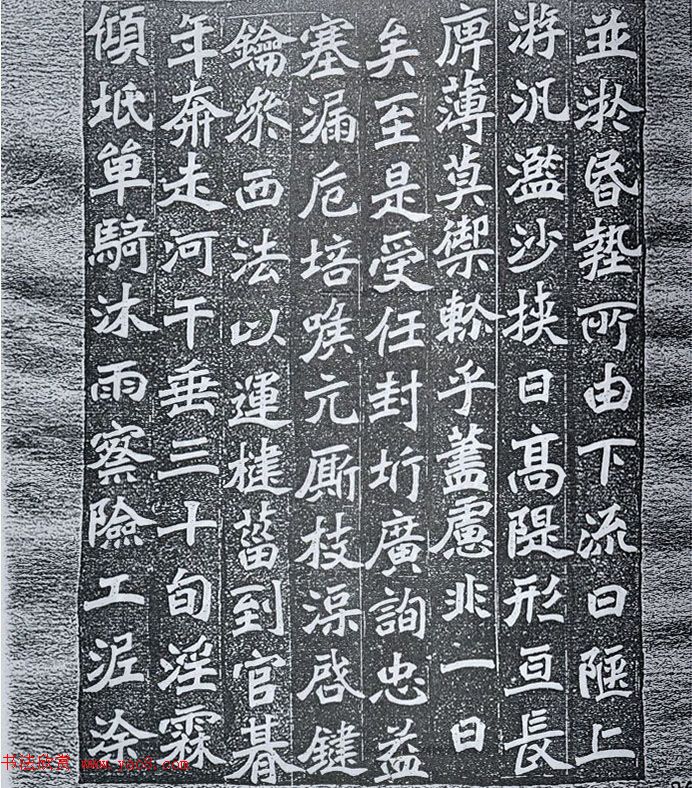 並淤昏墊所由下流日陻上
游汎濫沙挾日高隄形亘長
庳薄莫禦軫乎藎慮非一日
矣至是受任封圻廣詢忠益
塞漏卮培喉亢厮枝渠啓鍵
鑰參西法以運楗菑到官朞
年奔走河干垂三十旬淫霖
傾坻單騎沐雨察險工泥涂
书法欣赏 www.yac8.com